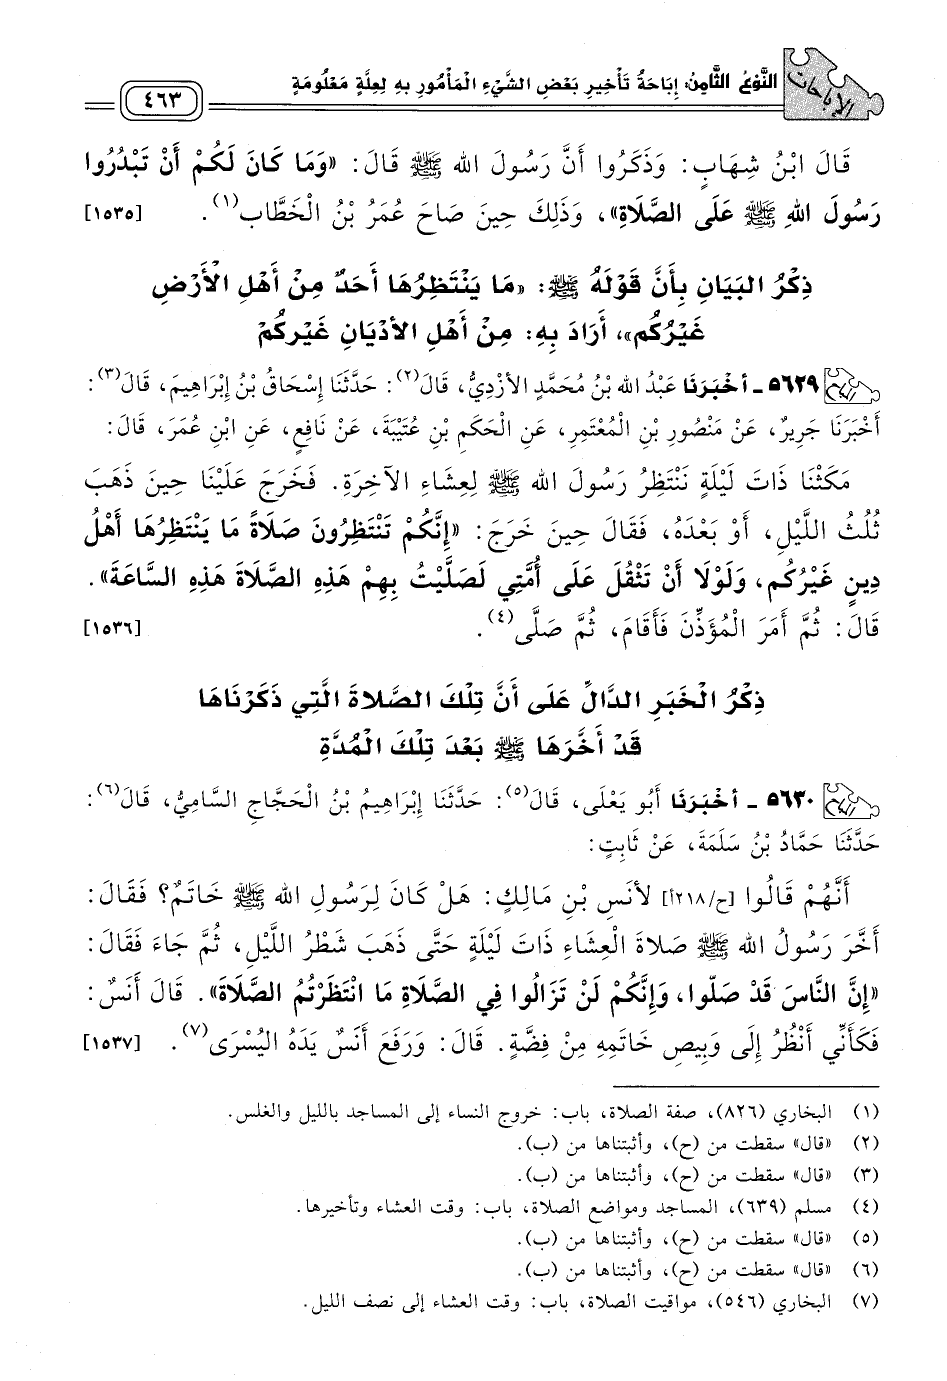 الإباحات
النَّوْعُ الثَّامِنُ: إِبَاحَةُ تَأْخِيرِ بَعْضِ الشَّيْءِ الْمَأْمُورِ بِهِ لِعِلَّةٍ مَعْلُومَةٍ
٤٦٣
قَالَ ابْنُ شِهَابٍ: وَذَكَرُوا أَنَّ رَسُولَ الله ﷺ قَالَ: «وَمَا كَانَ لَكُمْ أَنْ تَبْدُرُوا
رَسُولَ اللهِ ﷺ عَلَى الصَّلَاةِ»، وَذَلِكَ حِينَ صَاحَ عُمَرُ بْنُ الْخَطَّابِ(١). [١٥٣٥]
ذِكْرُ البَيَانِ بِأَنَّ قَوْلَهُ ﷺ: «مَا يَنْتَظِرُهَا أَحَدٌ مِنْ أَهْلِ الْأَرْضِ
غَيْرُكُم»، أَرَادَ بِهِ: مِنْ أَهْلِ الأَدْيَانِ غَيْرِكُمْ
٥٦٢٩ ـ أخْبَرَنَا عَبْدُ الله بْنُ مُحَمَّدٍ الأَزْدِيُّ، قَالَ(٢): حَدَّثَنَا إِسْحَاقُ بْنُ إِبْرَاهِيمَ، قَالَ(٣):
أَخْبَرَنَا جَرِيرٌ، عَنْ مَنْصُورِ بْنِ الْمُعْتَمِرِ، عَنِ الْحَكَمِ بْنِ عُتَيْبَةَ، عَنْ نَافِعٍ، عَنِ ابْنِ عُمَرَ، قَالَ:
مَكَثْنَا ذَاتَ لَيْلَةٍ نَنْتَظِرُ رَسُولَ الله ﷺ لِعِشَاءِ الآخِرَةِ. فَخَرَجَ عَلَيْنَا حِينَ ذَهَبَ
ثُلُثُ اللَّيْلِ، أَوْ بَعْدَهُ، فَقَالَ حِينَ خَرَجَ: «إِنَّكُمْ تَنْتَظِرُونَ صَلَاةً مَا يَنْتَظِرُهَا أَهْلُ
دِينٍ غَيْرُكُم، وَلَوْلَا أَنْ تَثْقُلَ عَلَى أُمَّتِي لَصَلَّيْتُ بِهِمْ هَذِهِ الصَّلَاةَ هَذِهِ السَّاعَةَ».
قَالَ: ثُمَّ أَمَرَ الْمُؤَذِّنَ فَأَقَامَ، ثُمَّ صَلَّى(٤). [١٥٣٦]
ذِكْرُ الْخَبَرِ الدَّالِّ عَلَى أَنَّ تِلْكَ الصَّلَاةَ الَّتِي ذَكَرْنَاهَا
قَدْ أَخَّرَهَا ﷺ بَعْدَ تِلْكَ الْمُدَّةِ
٥٦٣٠ ـ أخْبَرَنَا أَبُو يَعْلَى، قَالَ(٥): حَدَّثَنَا إِبْرَاهِيمُ بْنُ الْحَجَّاجِ السَّامِيُّ، قَالَ(٦):
حَدَّثَنَا حَمَّادُ بْنُ سَلَمَةَ، عَنْ ثَابِتٍ:
أَنَّهُمْ قَالُوا [ح/٢١٨أ] لأَنَسِ بْنِ مَالِكٍ: هَلْ كَانَ لِرَسُولِ الله ﷺ خَاتَمٌ؟ فَقَالَ:
أَخَّرَ رَسُولُ الله ﷺ صَلَاةَ الْعِشَاءِ ذَاتَ لَيْلَةٍ حَتَّى ذَهَبَ شَطْرُ اللَّيْلِ، ثُمَّ جَاءَ فَقَالَ:
«إِنَّ النَّاسَ قَدْ صَلّوا، وَإِنَّكُمْ لَنْ تَزَالُوا فِي الصَّلَاةِ مَا انْتَظَرْتُمُ الصَّلَاةَ». قَالَ أَنَسٌ:
فَكَأَنِّي أَنْظُرُ إِلَى وَبِيصِ خَاتَمِهِ مِنْ فِضَّةٍ. قَالَ: وَرَفَعَ أَنَسٌ يَدَهُ الْيُسْرَى(٧). [١٥٣٧]
(١) البخاري (٨٢٦)، صفة الصلاة، باب: خروج النساء إلى المساجد بالليل والغلس.
(٢) «قال» سقطت من (ح)، وأثبتناها من (ب).
(٣) «قال» سقطت من (ح)، وأثبتناها من (ب).
(٤) مسلم (٦٣٩)، المساجد ومواضع الصلاة، باب: وقت العشاء وتأخيرها.
(٥) «قال» سقطت من (ح)، وأثبتناها من (ب).
(٦) «قال» سقطت من (ح)، وأثبتناها من (ب).
(٧) البخاري (٥٤٦)، مواقيت الصلاة، باب: وقت العشاء إلى نصف الليل.